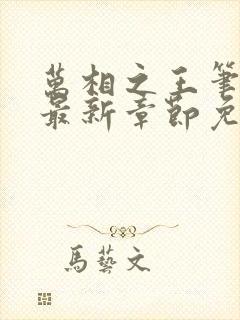 萬相之王筆
最新章節免
馬藝文